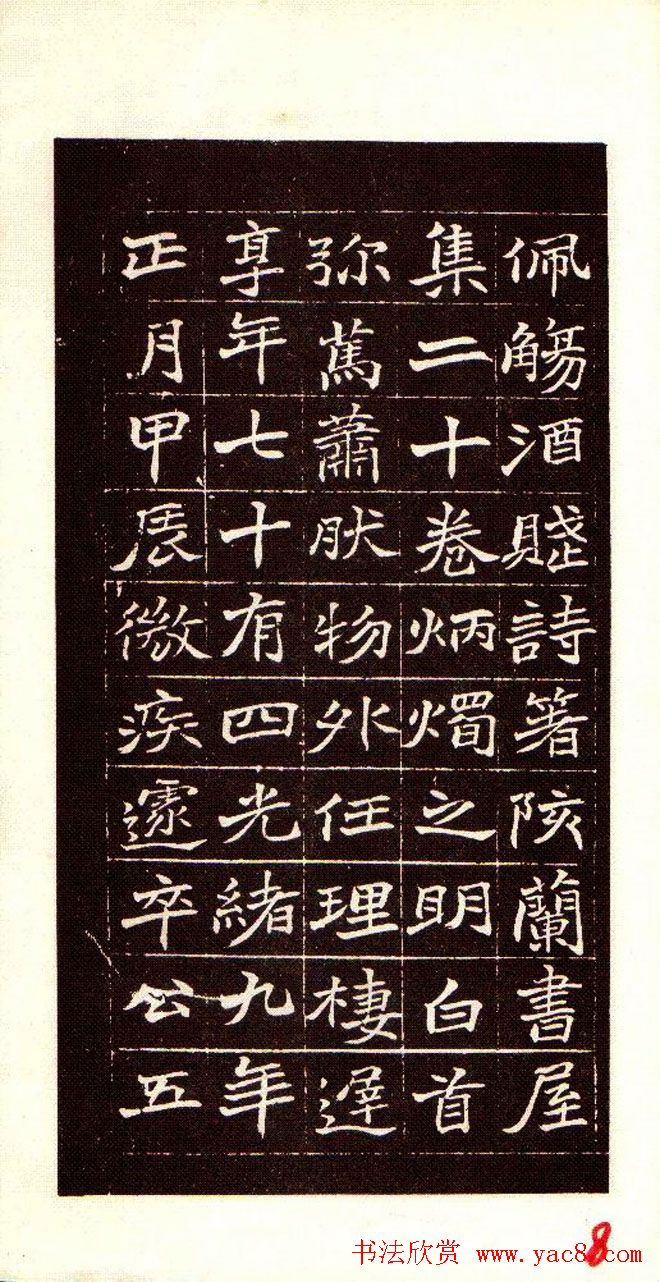 佩觴酒賤詩箸陔蘭書屋
集二十卷炳燭之明白首
弥䔍蕭肰物外任理棲遟
享年七十有四光緒九年
正月甲辰微疾遽卒公五
8
书法欣赏 www.yac8